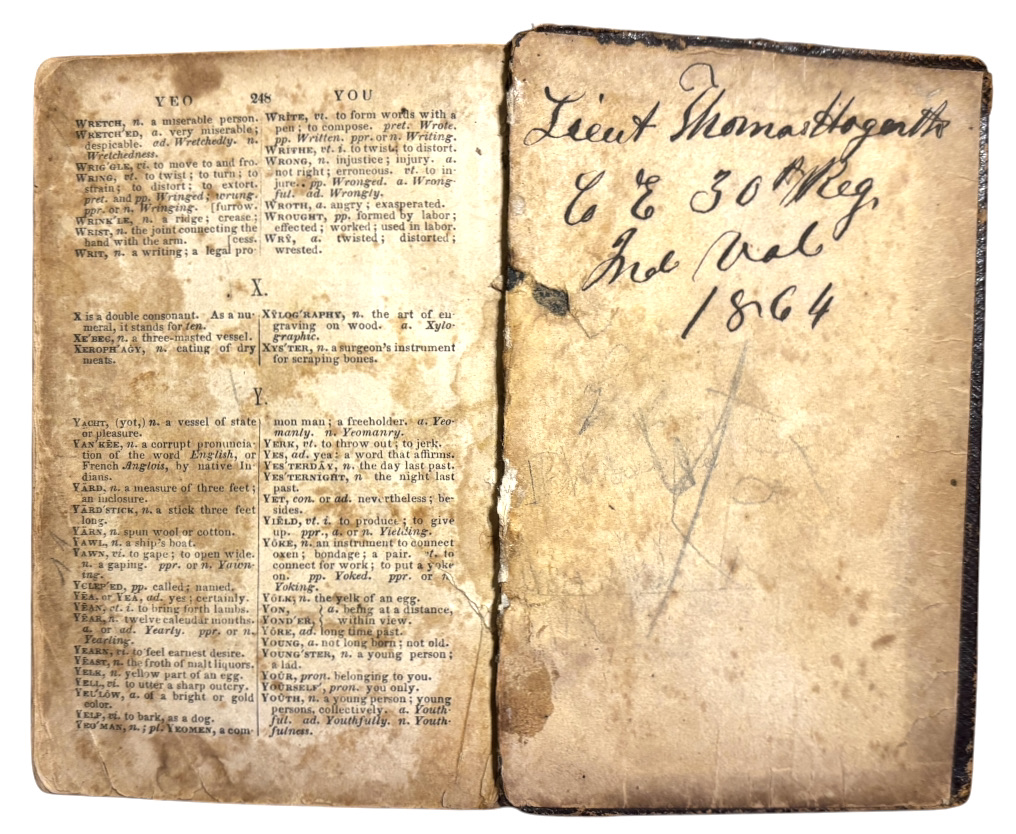 YEO 248 YOU
WRETCH, n. a miserable person.
WRETCH'ED, a. very miserable;
despicable. ad. Wretchedly. n.
Wretchedness.
WRIG'GLE, vi. to move to and fro.
WRING, vt. to twist; to turn; to
strain; to distort; to extort.
pret. and pp. Wringed; wrung.
ppr. or n. Wringing. [furrow.
WRINK'LE, n. a ridge; crease;
WRIST, n. the joint connecting the
hand with the arm. [cess.
WRIT, n. a writing; a legal pro-
WRITE, vt. to form words with a
pen; to compose. pret. Wrote.
pp. Written. ppr. or n. Writing.
WRITHE, vt. i. to twist; to distort.
WRONG, n. injustice; injury. a.
not right; erroneous. vt. to in-
jure. pp. Wronged. a. Wrong-
ful. ad. Wrongly.
WROTH, a. angry; exasperated.
WROUGHT, pp. formed by labor;
effected; worked; used in labor.
WRY, a. twisted; distorted;
wrested.
X.
X is a double consonant. As a nu-
meral, it stands for ten.
XE'BEC, n. a three-masted vessel.
XEROPH'AGY, n. eating of dry
meats.
XYLOG'RAPHY, n. the art of en-
graving on wood. a. Xylo-
graphic.
XYS'TER, n. a surgeon's instrument
for scraping bones.
Y.
YACHT, (yot,) n. a vessel of state
or pleasure.
YAN'KEE, n. a corrupt pronuncia-
tion of the word English, or
French Anglois, by native In-
dians.
YÄRD, n. a measure of three feet;
an inclosure.
YÄRD'STICK, n. a stick three feet
long.
YÄRN, n. spun wool or cotton.
YAWL, n. a ship's boat.
YAWN, vi. to gape; to open wide.
n. a gaping. ppr. or n. Yawn-
ing.
YCLEP'ED, pp. called; named.
YEA, or YEA, ad. yes; certainly.
YEAN, vt. i. to bring forth lambs.
YEAR, n. twelve calendar months.
a. or ad. Yearly. ppr. or n.
Yearling.
YEARN, vi. to feel earnest desire.
YEAST, n. the froth of malt liquors.
YELK, n. yellow part of an egg.
YELL, vi. to utter a sharp outcry.
YEL'LOW, a. of a bright or gold
color.
YELP, vi. to bark, as a dog.
YEO'MAN, n.; pl. YEOMEN, a com-
mon man; a freeholder. a. Yeo-
manly. n. Yeomanry.
YERK, vt. to throw out; to jerk.
YES, ad. yea: a word that affirms.
YES'TERDAY, n. the day last past.
YES'TERNIGHT, n. the night last
past.
YET, con. or ad. nevertheless; be-
sides.
YIELD, vt. i. to produce; to give
up. ppr., a. or n. Yielding.
YOKE, n. an instrument to connect
oxen; bondage; a pair. vt. to
connect for work; to put a yoke
on. pp. Yoked. ppr. or n.
Yoking.
YOLK, n. the yelk of an egg.
YON, } a. being at a distance,
YOND'ER, } within view.
YORE, ad. long time past.
YOUNG, a. not long born; not old.
YOUNG'STER, n. a young person;
a lad.
YOUR, pron. belonging to you.
YOURSELF', pron. you only.
YOUTH, n. a young person; young
persons, collectively. a. Youth-
ful. ad. Youthfully. n. Youth-
fulness.
Lieut Thomas Hogarth
C E 30th Reg.
Ind Vol
1864